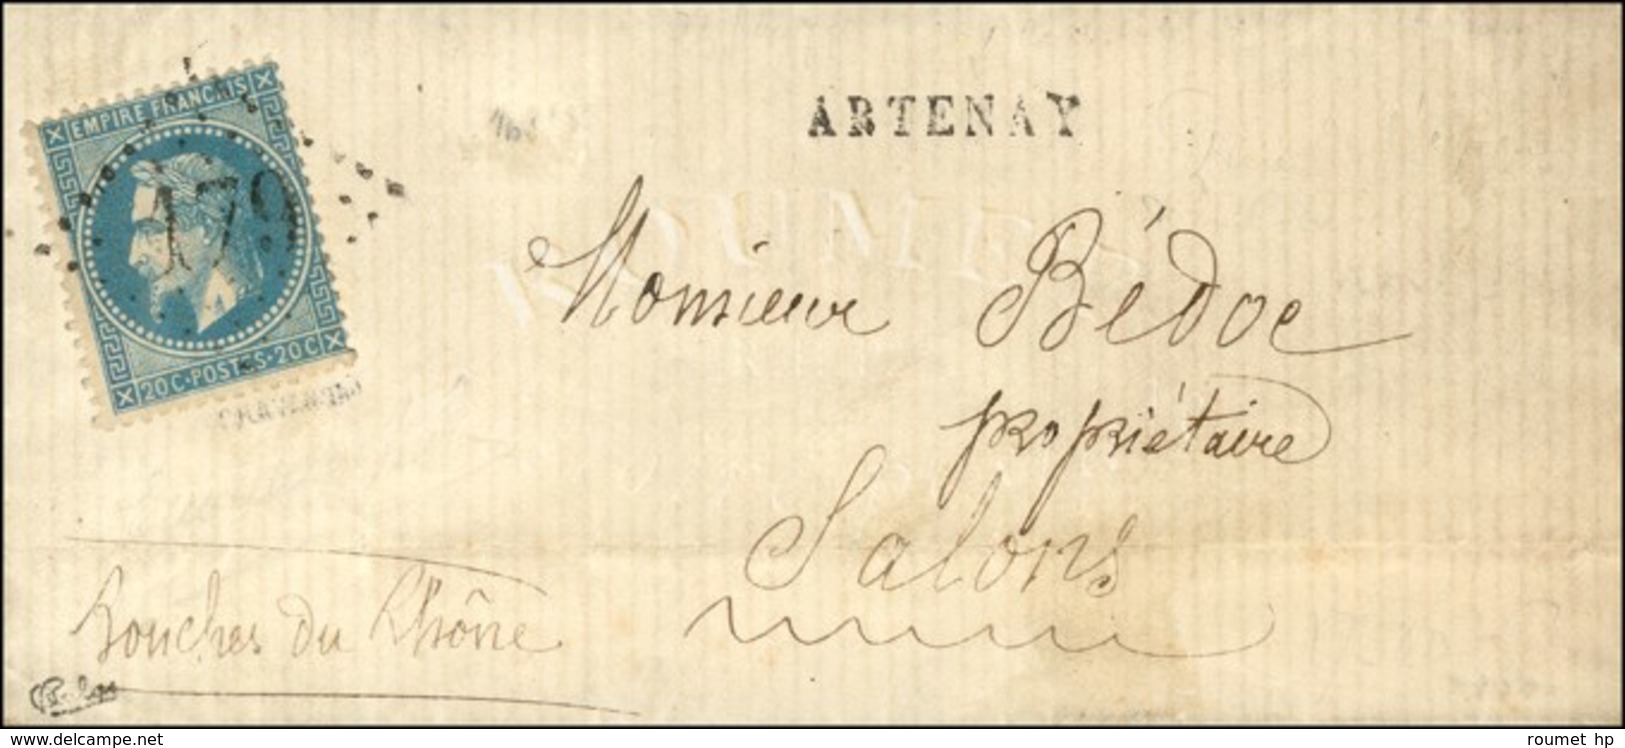 EMPIRE FRANCAIS
179
20 C · POSTES · 20 C
ARTENAY
Monsieur Bédoc
propriétaire
Salons
Bouches du Rhône
www.delcampe.net
roumet hp